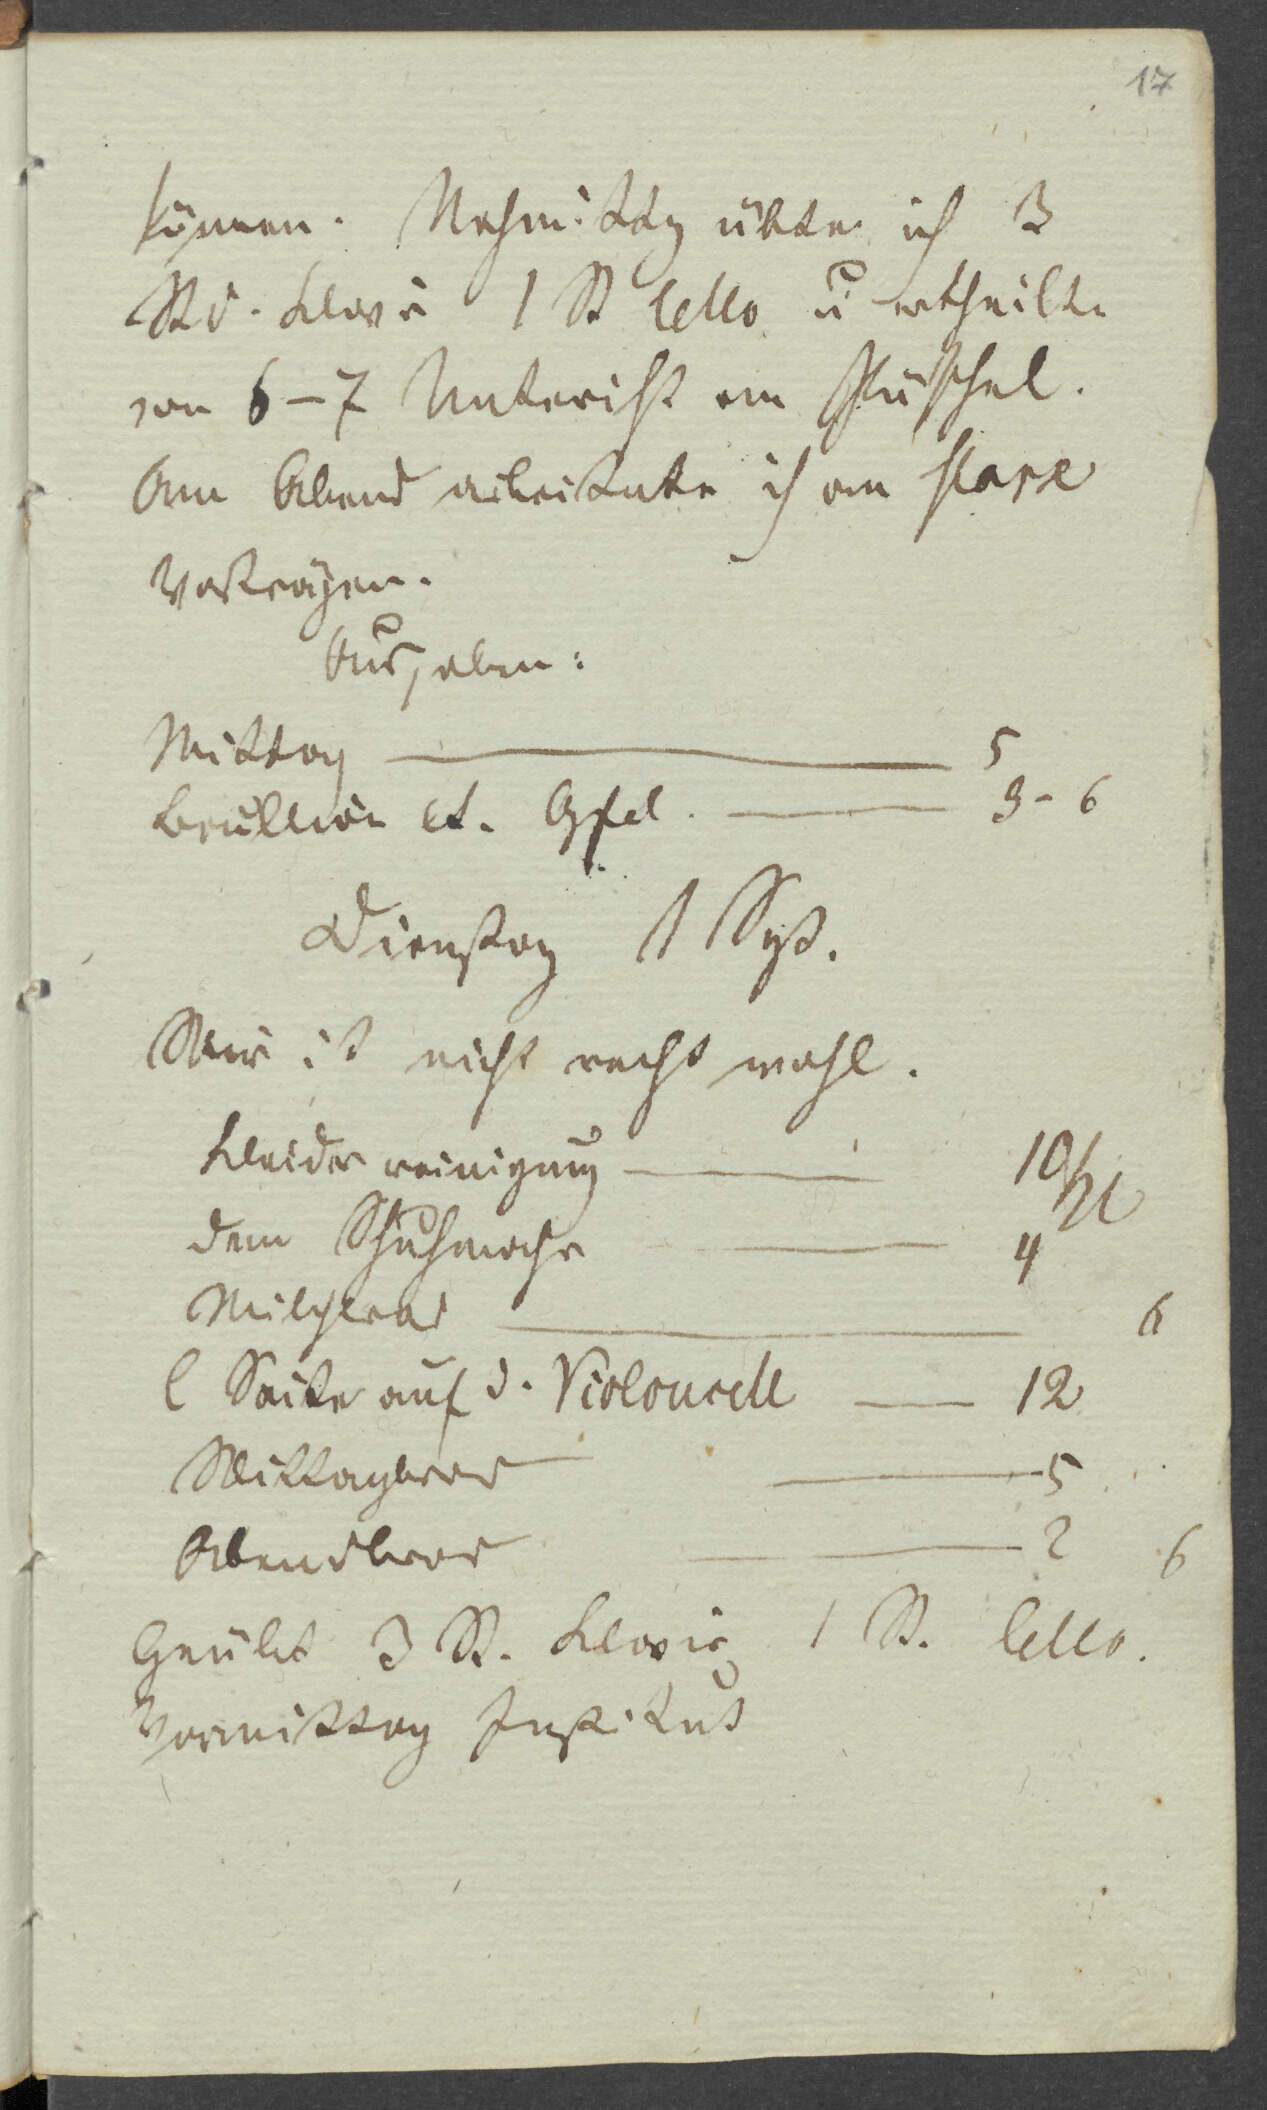 17
können. Nachmittag übte ich 3
Std. Klavi 1 St Cello u ertheilte
von 6-7 Unterricht an Püschel.
Am Abend arbeitete ich an Marx
Vorträgen.
Ausgaben:
Mittag 5
Bouillon et. Apfel. 3-6
Dienstag 1 Spt.
Mir ist nicht recht wohl.
Kleiderreinigung 10
dem Schuhmacher 4
Milchbrod 6
1 Saite auf d. Violoncell 12
Mittagbrod 5
Abendbrod 2 6
Geübt 3 St. Klavir 1 St. Cello.
Vormittag Institut